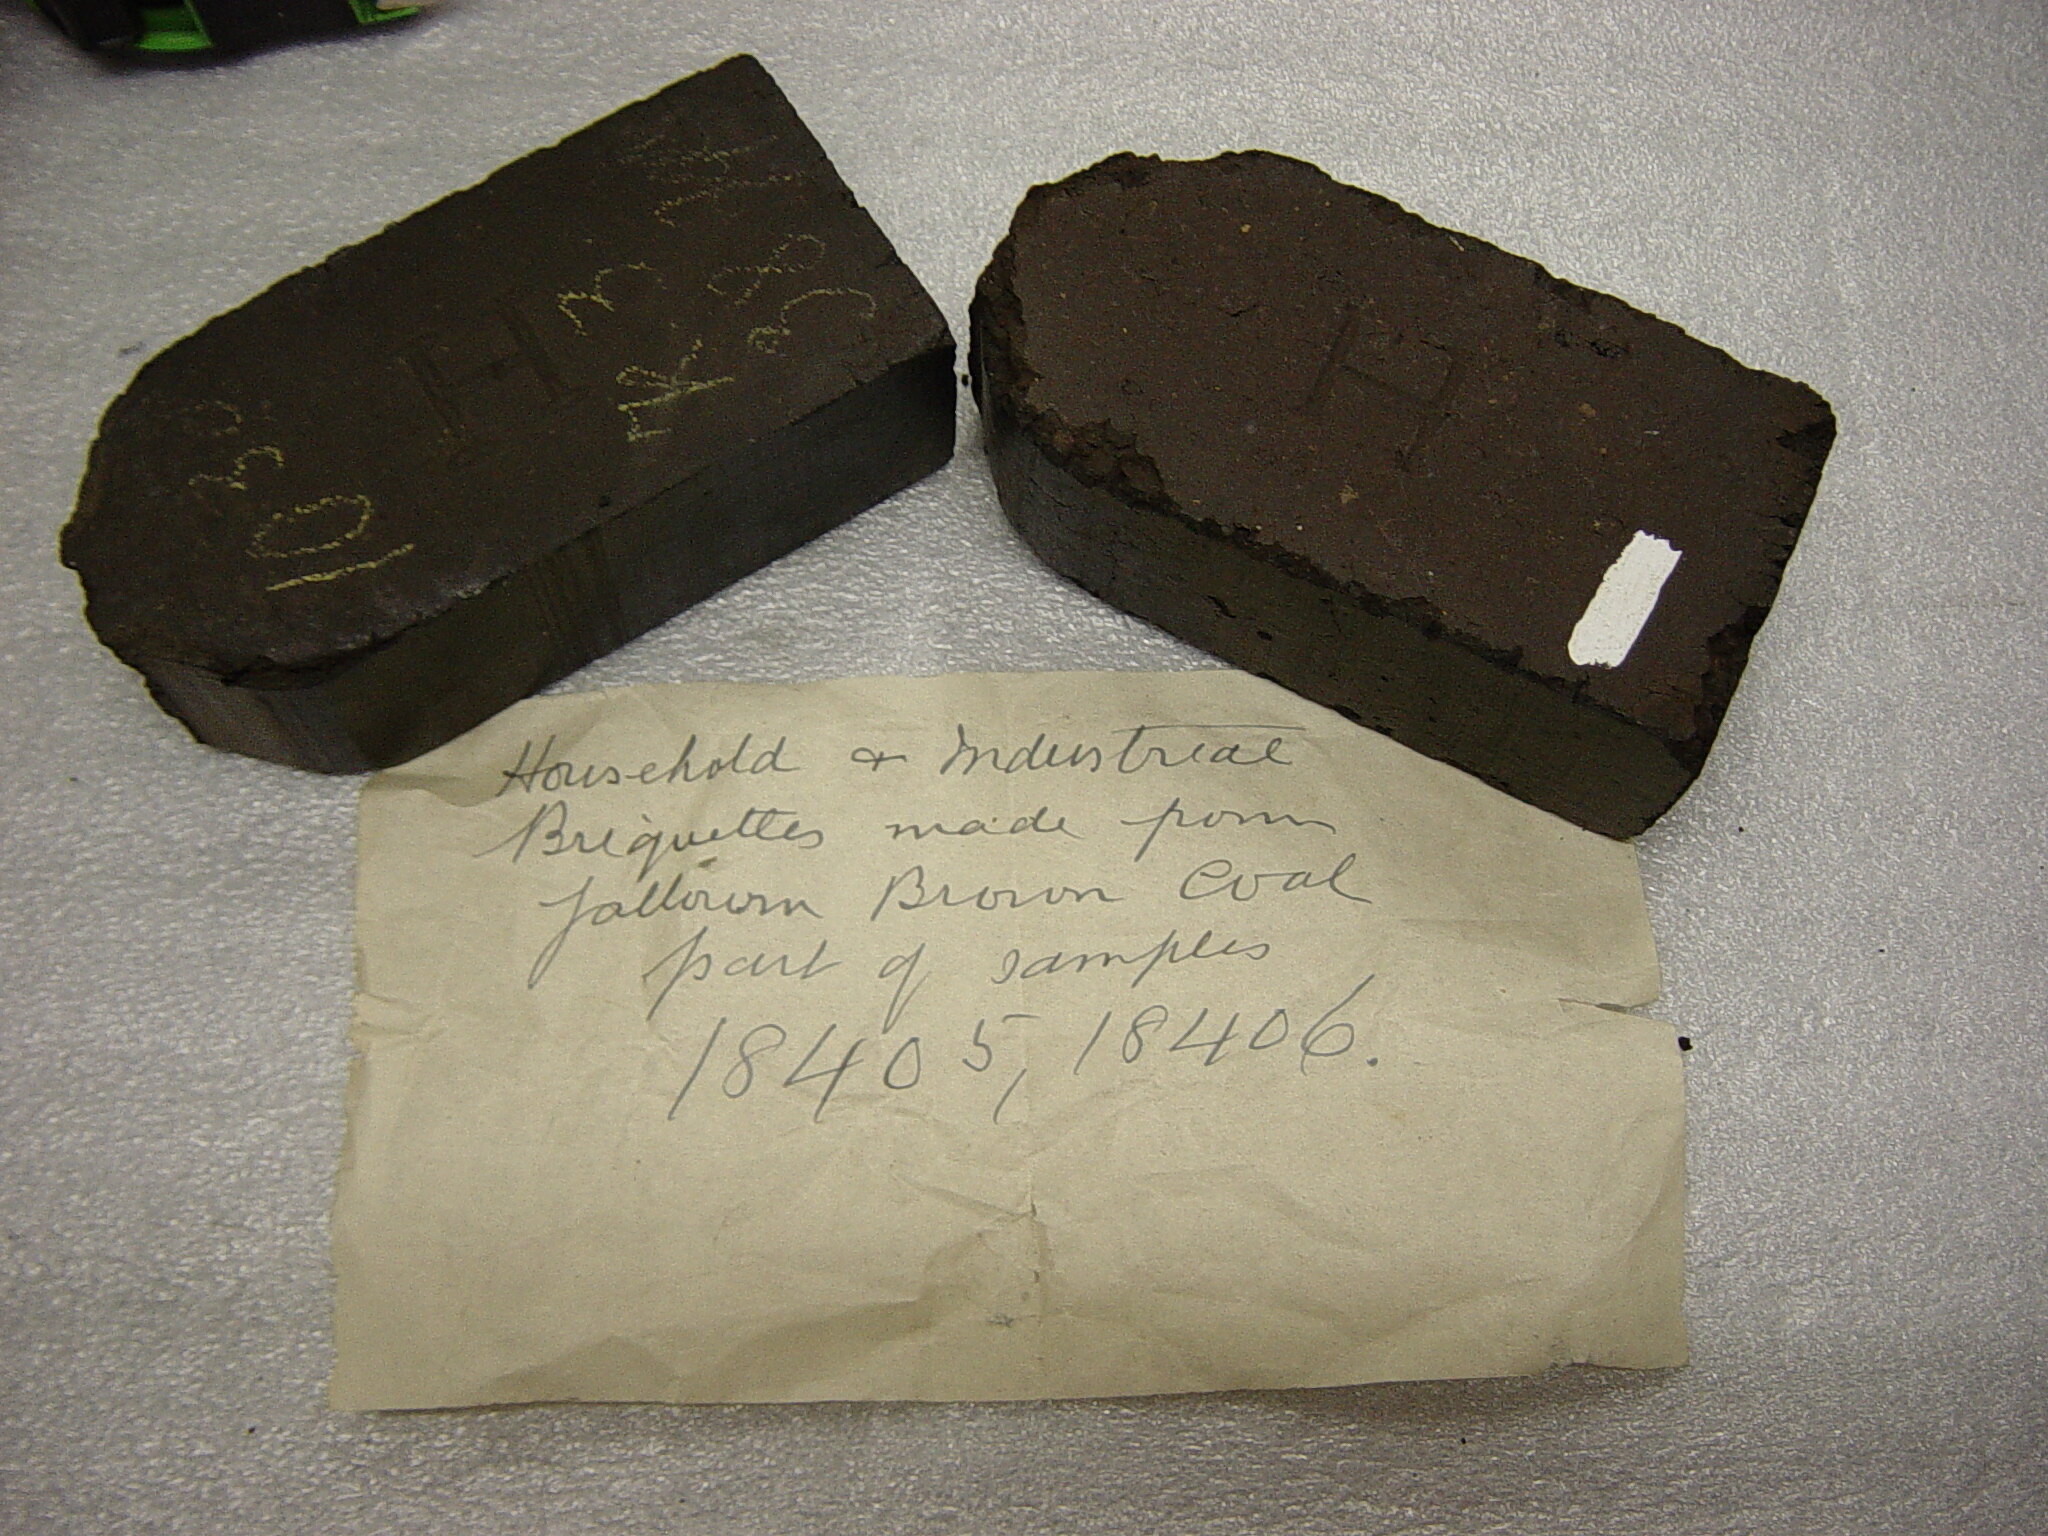 10 30
H
3
H
Household & Industrial
Briquettes made from
Yallourn Brown Coal
part of samples
18405, 18406.